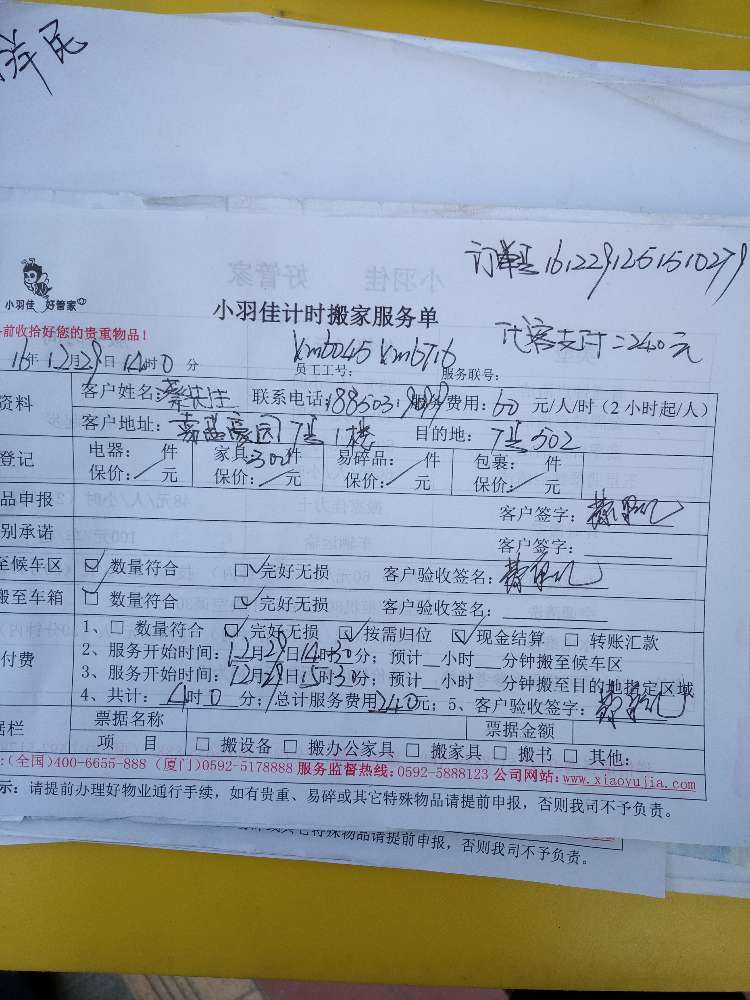 祥民
订单号161229125151510279
小羽佳 好管家
小羽佳计时搬家服务单
代客支付=240元
前收拾好您的贵重物品！
16年12月29日14时0分 员工工号： 服务联号：
资料 客户姓名： 联系电话： 费用：60元/人/时（2小时起/人）
客户地址： 7 1楼 目的地：7 502
登记 电器： 件 家具：30件 易碎品： 件 包裹： 件
保价： 元 保价： 元 保价： 元 保价： 元
品申报 客户签字：
别承诺 客户签字：
至候车区 ☑ 数量符合 ☑ 完好无损 客户验收签名：
搬至车箱 ☑ 数量符合 ☑ 完好无损 客户验收签名：
1、□ 数量符合 ☑ 完好无损 ☑ 按需归位 ☑ 现金结算 □ 转账汇款
付费 2、服务开始时间：12月29日14时30分；预计__小时__分钟搬至候车区
3、服务开始时间：12月29日15时30分；预计__小时__分钟搬至目的地指定区域
4、共计：4时0分；总计服务费用240元；5、客户验收签字：
据栏 票据名称 票据金额
项 目 □ 搬设备 □ 搬办公家具 □ 搬家具 □ 搬书 □ 其他：
:(全国)400-6655-888 (厦门)0592-5178888 服务监督热线:0592-5888123 公司网站:www.xiaoyujia.com
示：请提前办理好物业通行手续，如有贵重、易碎或其它特殊物品请提前申报，否则我司不予负责。
其它特殊物品请提前申报，否则我司不予负责。